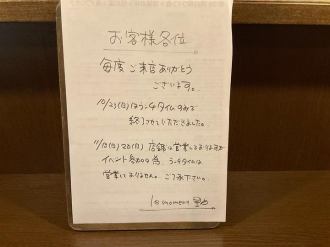 お客様各位。
毎度ご来店ありがとう
ございます。
10/23(日)はランチタイムのみで
終了させていただきました。
11/19(土)20(日)店舗は営業しておりますが
イベント参加の為 ランチタイムは
営業しておりません。ご了承下さい。
le moment